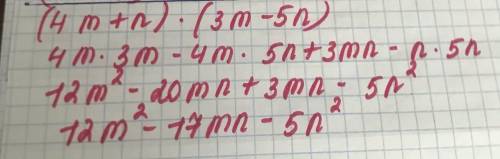 (4m+n)·(3m-5n)
4m·3m-4m·5n+3mn-n·5n
12m²-20mn+3mn-5n²
12m²-17mn-5n²